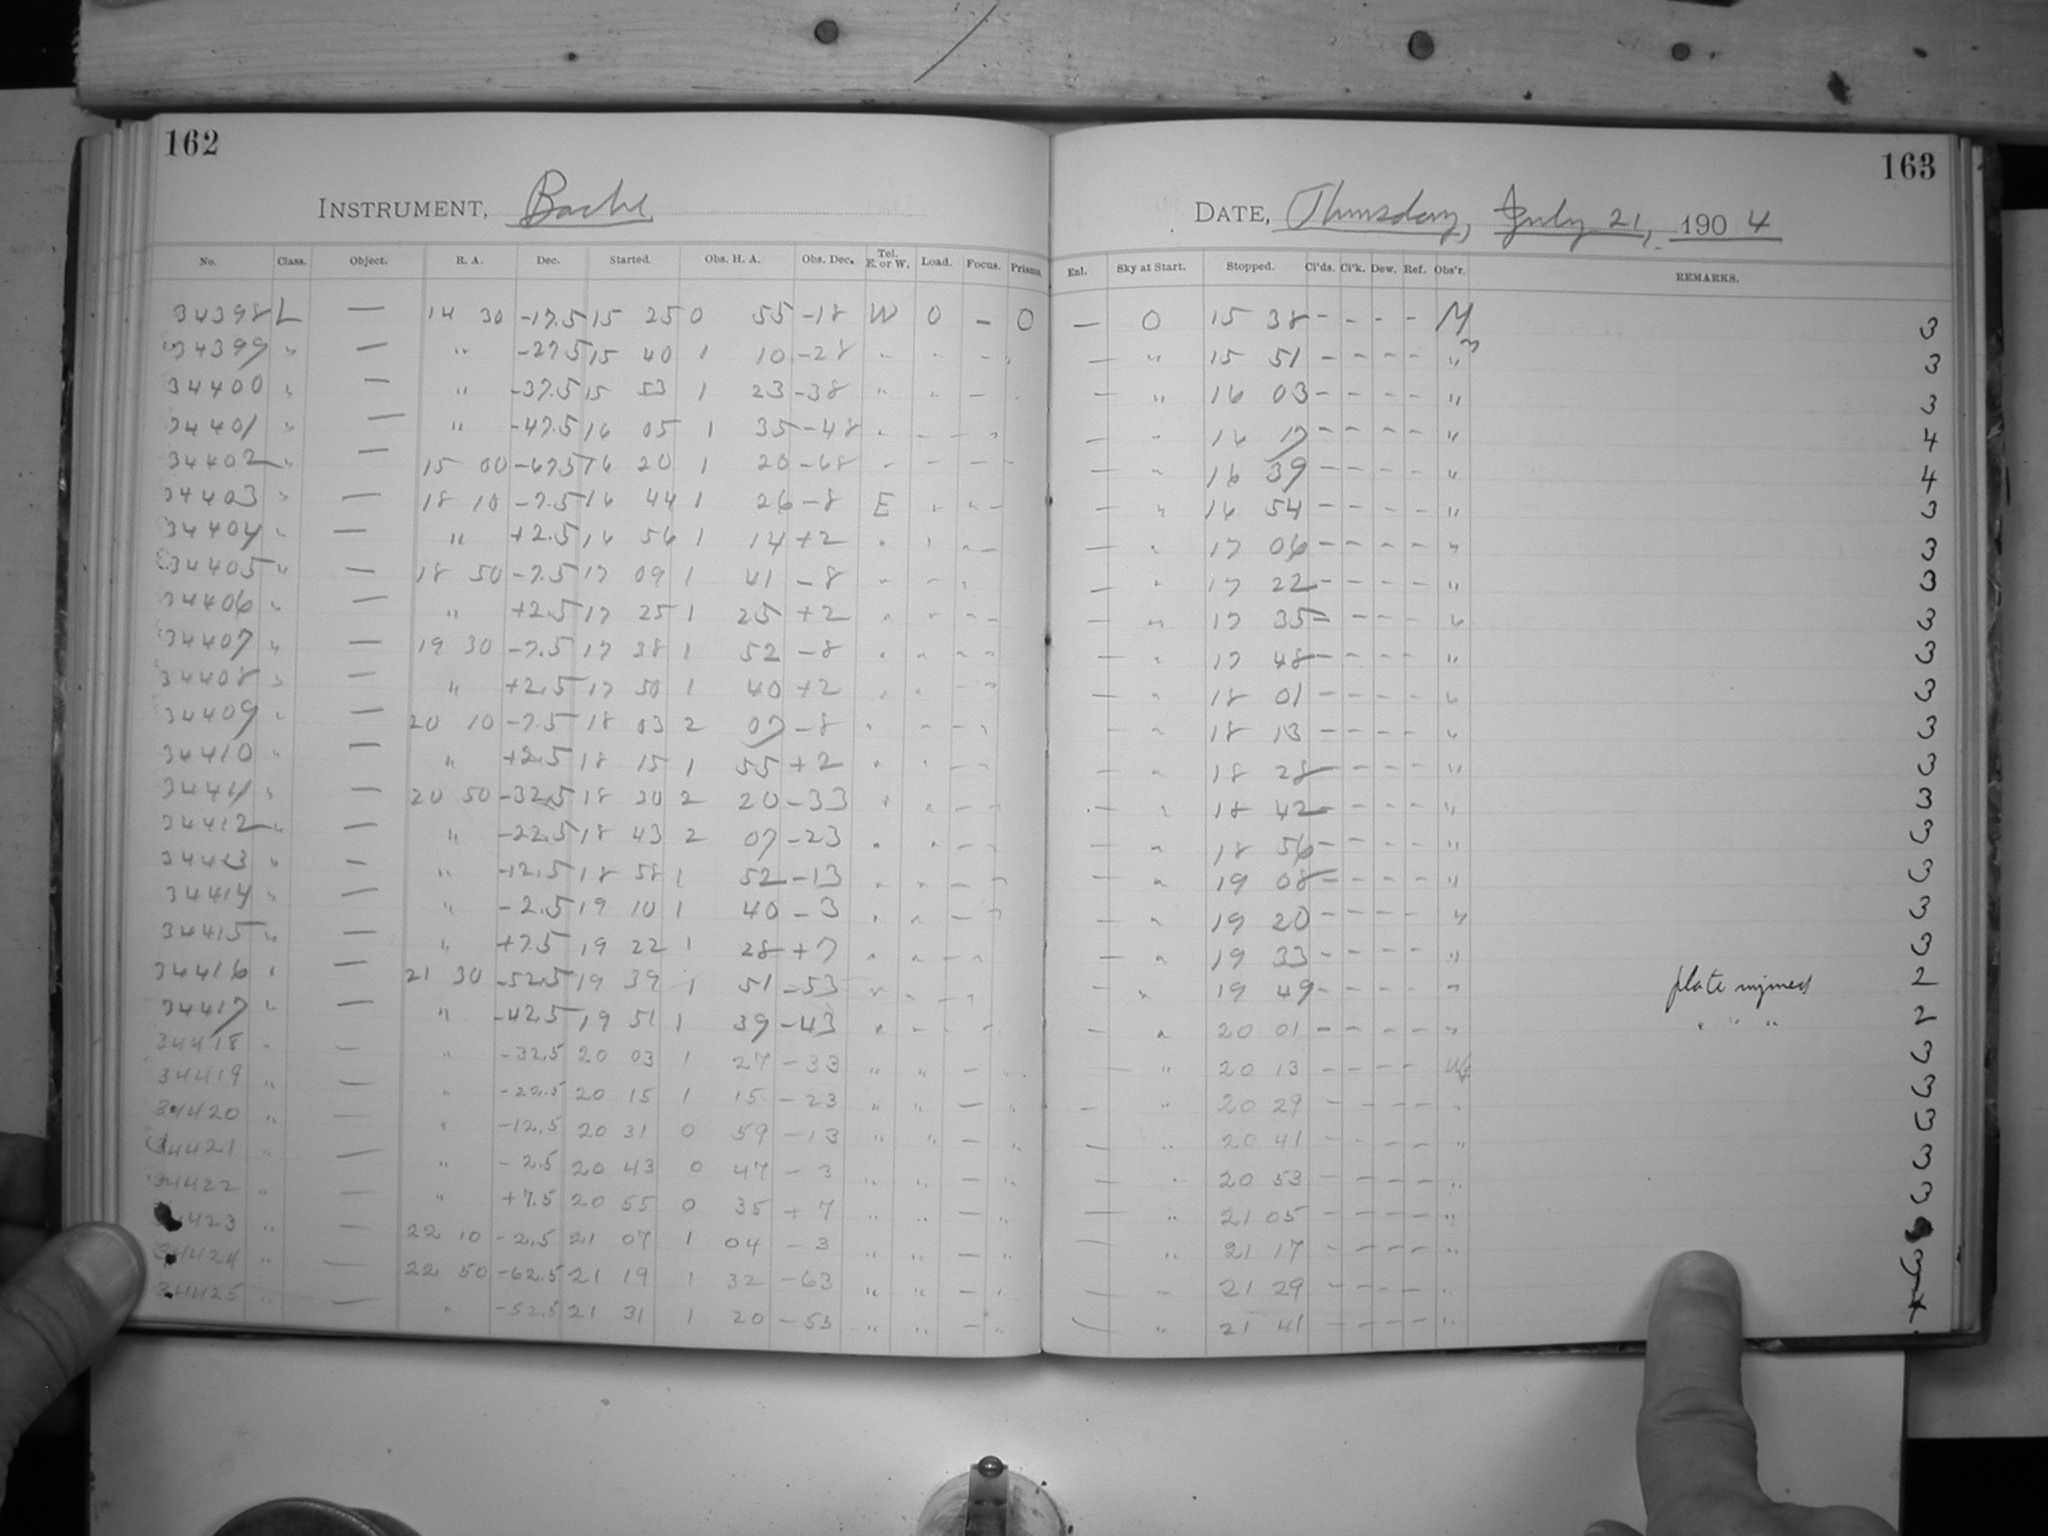 162
163
INSTRUMENT, Bache
DATE, Thursday, July 21, 1904
No. Class. Object. R. A. Dec. Started. Obs. H. A. Obs. Dec. Tel. E. or W. Load. Focus. Prisms. Enl. Sky at Start. Stopped. Cl'ds. Cl'k. Dew. Ref. Obs'r. REMARKS.
34398 L — 14 30 -17.5 15 25 0 55 -18 W 0 - 0 — 0 15 38 - - - - M 3
34399 " — " -27.5 15 40 1 10 -28 " — " 15 51 - - - - " 3
34400 " — " -37.5 15 53 1 23 -38 " — " 16 03 - - - - " 3
34401 " — " -47.5 16 05 1 35 -48 " — " 16 17 - - - - " 4
34402 " — 15 00 -67.5 16 20 1 20 -68 " — " 16 39 - - - - " 4
34403 " — 18 10 -7.5 16 44 1 26 -8 E — " 16 54 - - - - " 3
34404 " — " +2.5 16 56 1 14 +2 " — " 17 06 - - - - " 3
34405 " — 18 50 -7.5 17 09 1 41 -8 " — " 17 22 - - - - " 3
34406 " — " +2.5 17 25 1 25 +2 " — " 17 35 - - - - " 3
34407 " — 19 30 -7.5 17 38 1 52 -8 " — " 17 48 - - - - " 3
34408 " — " +2.5 17 50 1 40 +2 " — " 18 01 - - - - " 3
34409 " — 20 10 -7.5 18 03 2 07 -8 " — " 18 13 - - - - " 3
34410 " — " +2.5 18 15 1 55 +2 " — " 18 28 - - - - " 3
34411 " — 20 50 -32.5 18 30 2 20 -33 " — " 18 42 - - - - " 3
34412 " — " -22.5 18 43 2 07 -23 " — " 18 56 - - - - " 3
34413 " — " -12.5 18 58 1 52 -13 " — " 19 08 - - - - " 3
34414 " — " -2.5 19 10 1 40 -3 " — " 19 20 - - - - " 3
34415 " — " +7.5 19 22 1 28 +7 " — " 19 33 - - - - " 3
34416 " — 21 30 -52.5 19 39 1 51 -53 " — " 19 49 - - - - " plate injured 2
34417 " — " -42.5 19 51 1 39 -43 " — " 20 01 - - - - " " " " 2
34418 " — " -32.5 20 03 1 27 -33 " " - " — " 20 13 - - - - 3
34419 " — " -22.5 20 15 1 15 -23 " " — " — " 20 29 - - - - " 3
34420 " — " -12.5 20 31 0 59 -13 " " — " — " 20 41 - - - - " 3
34421 " — " -2.5 20 43 0 47 -3 " " — " — " 20 53 - - - - " 3
34422 " — " +7.5 20 55 0 35 +7 " " — " — " 21 05 - - - - " 3
423 " — 22 10 -2.5 21 07 1 04 -3 " " — " — " 21 17 - - - - "
34424 " — 22 50 -62.5 21 19 1 32 -63 " " — " — " 21 29 - - - - " 3
34425 " — " -52.5 21 31 1 20 -53 " " — " — " 21 41 - - - - "